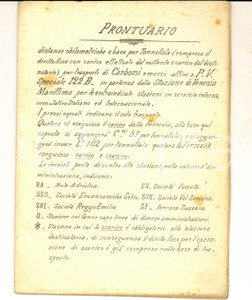 PRONTUARIO
distanze chilometriche e base per Tonnellata (compreso il
diritto fisso con carico effettuato dal mittente e scarico dal desti-
natario) pei trasporti di Carboni e merci affini a P.V.
Speciale 122 B. in partenza dalla Stazione di Venezia
Marittima per le controindicate stazioni in servizio interno,
cumulativo Italiano ed Internazionale.
I prezzi esposti indicano il solo trasporto.
Qualora si eseguisca il carico dalla Ferrovia, alla base qui
esposta si aggiungerà C.mi 51 per tonnellata; e si aggiun-
gerà invece L. 102 per tonnellata qualora la Ferrovia
eseguisca carico e scarico.
Le iniziali poste accanto alle stazioni, nella colonna am-
ministrazione, indicano:
RA. - Rete Adriatica. SV. Società Veneta.
SFS - Società Tramvia Schio. SVS. Società Val Seriana.
SRE. Società Reggio Emilia SF - Ferrara Suzzara.
O. Stazione col fermo capo linea di diverse amministrazioni.
* . Stazione in cui lo scarico è obbligatorio alla stazione
destinataria, di conseguenza il diritto fisso per l'opera-
zione di scarico è già compreso nella base di tra-
sporto.